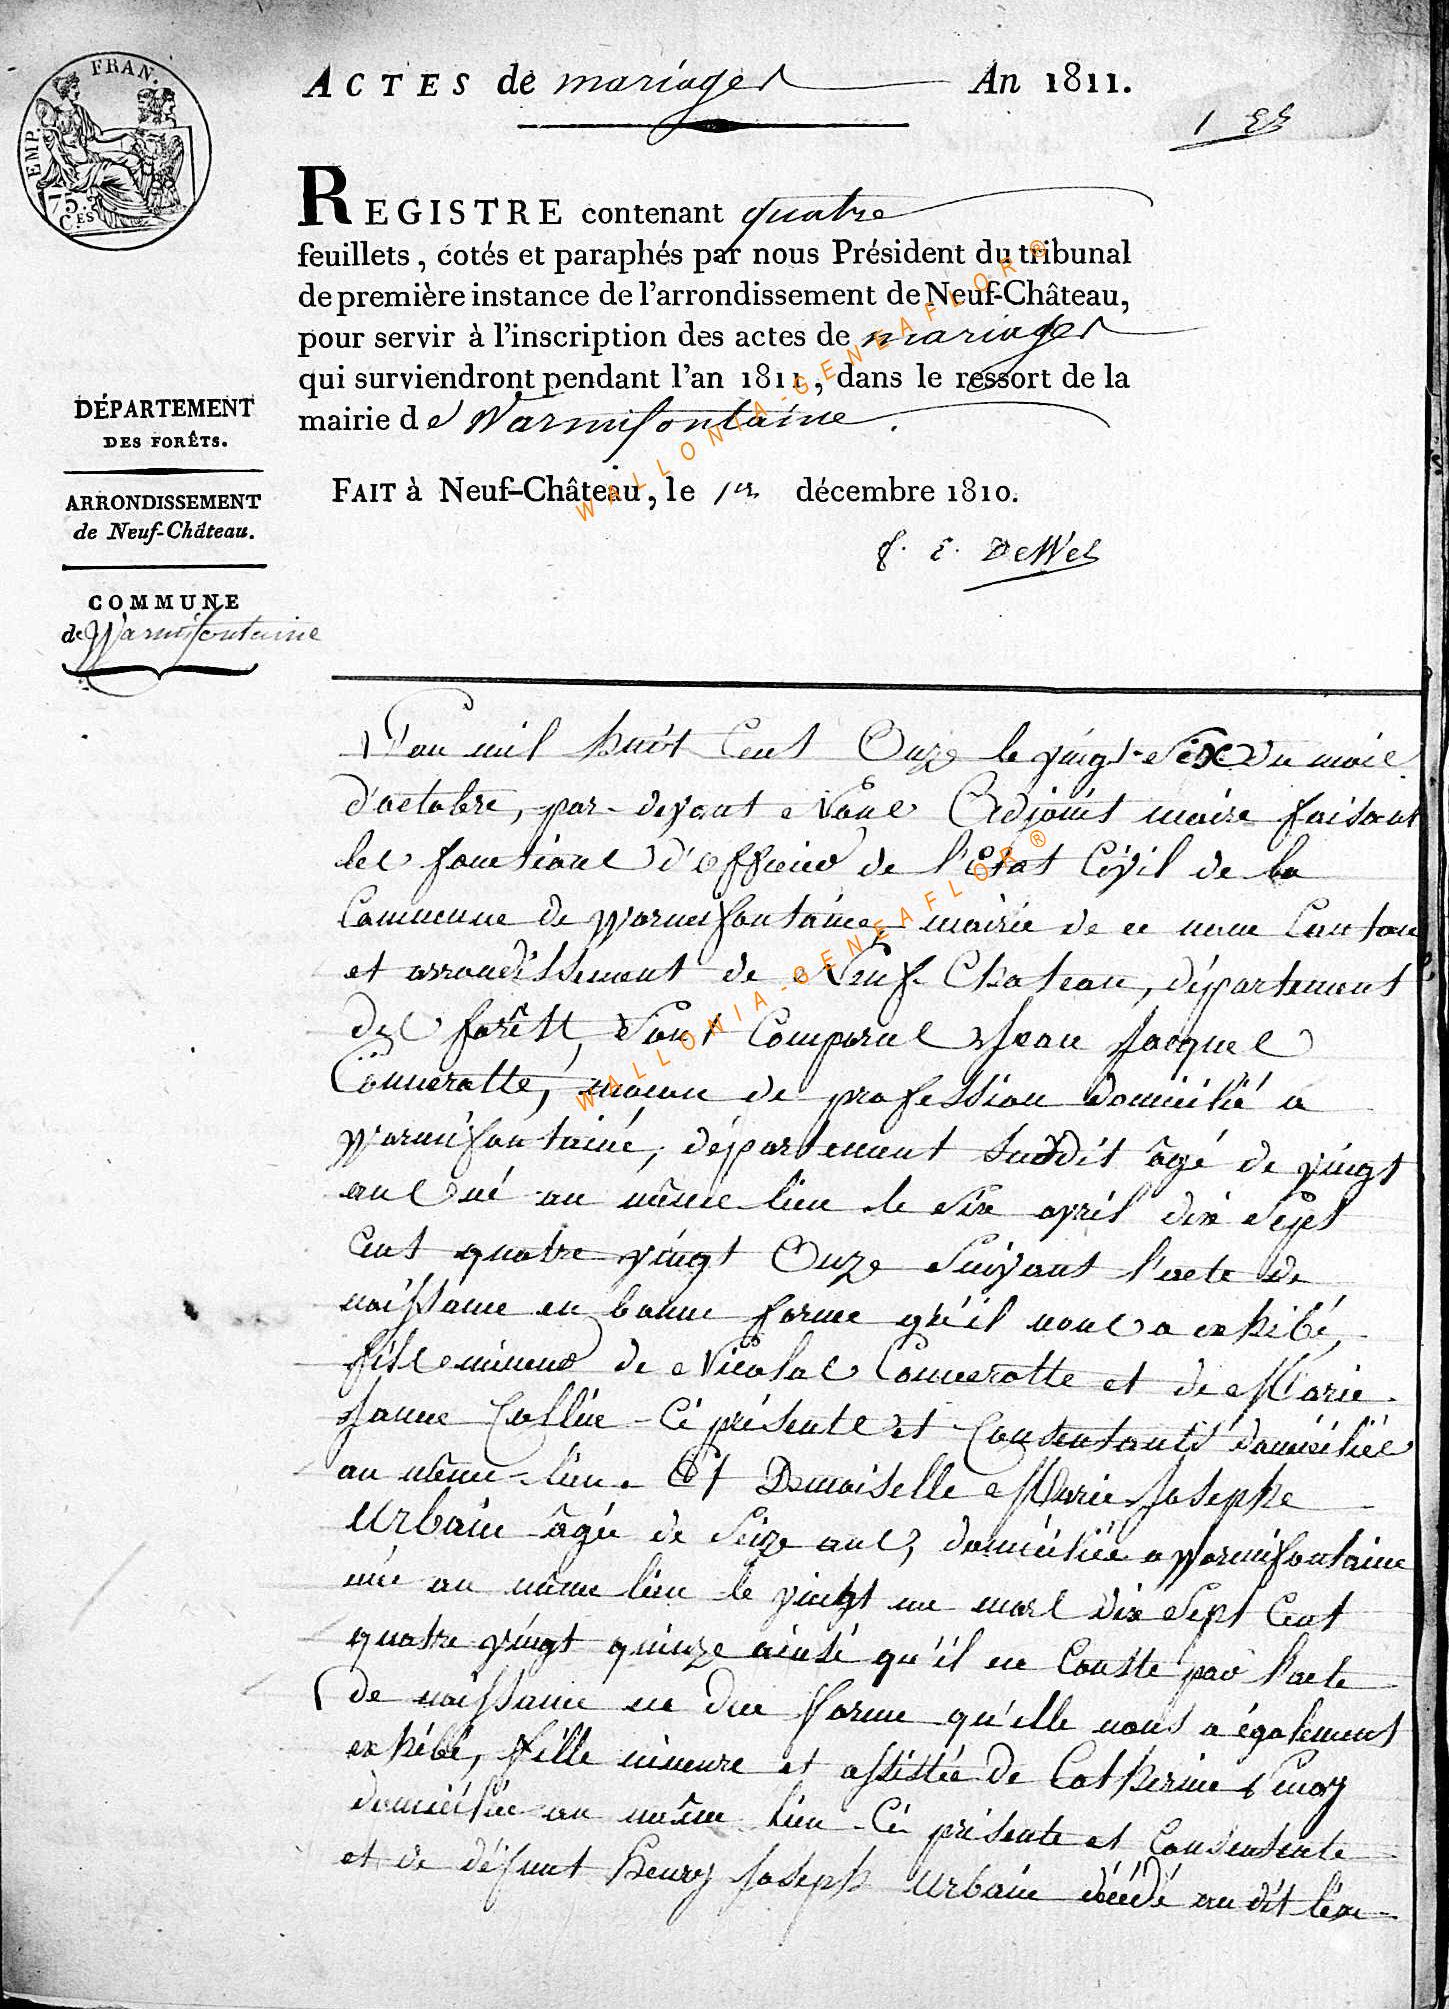 ACTES de mariages An 1811.
1 er
EMP. FRAN.
75.
C.ES
REGISTRE contenant quatre
feuillets, cotés et paraphés par nous Président du tribunal
de première instance de l'arrondissement de Neuf-Château,
pour servir à l'inscription des actes de mariages
qui surviendront pendant l'an 1811, dans le ressort de la
mairie de Warmifontaine.
FAIT à Neuf-Château, le 1er décembre 1810.
DeWez
DÉPARTEMENT
DES FORÊTS.
ARRONDISSEMENT
de Neuf-Château.
COMMUNE
de Warmifontaine
L'an mil huit Cent Onze le vingt-Six du mois
d'octobre, par-devant Nous Adjoint maire faisant
les fonctions d'officier de l'Etat Civil de la
Commune de Warmifontaine, mairie de ce nom Canton
et arrondissement de Neuf-Chateau, département
des forêts, Sont Comparus Jean Jacques
Connerotte, maçon de profession domicilié a
Warmifontaine, département Susdit âgé de vingt
ans né au même lieu le Six avril dix Sept
Cent quatre vingt Onze Suivant l'acte de
naissance en bonne forme qu'il nous a exhibé,
fils mineur de Nicolas Connerotte et de Marie
Janne Collin Ci présents et Consentants domiciliés
au même lieu. Et Demoiselle Marie Josephe
Urbain âgée de Seize ans, domiciliée a Warmifontaine
née au même lieu le vingt un mars dix Sept Cent
quatre vingt quinze ainsi qu'il en Conste par l'acte
de naissance en due forme qu'elle nous a également
exhibé, fille mineure et assistée de Catherine
domiciliée au même lieu Ci présente et Consentente
et de défunt Henry Joseph Urbain décédé au dit lieu
WALLONIA-GENEAFLOR®
WALLONIA-GENEAFLOR®